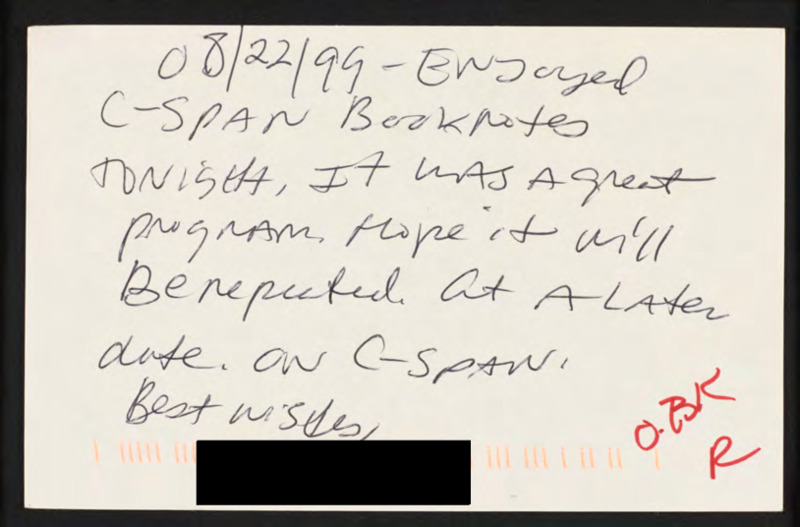 08/22/99 - Enjoyed
C-SPAN Booknotes
tonight, It was a great
program. Hope it will
Be repeated. at A LAter
date. ON C-SPAN.
Best wishes,
O.BK
R